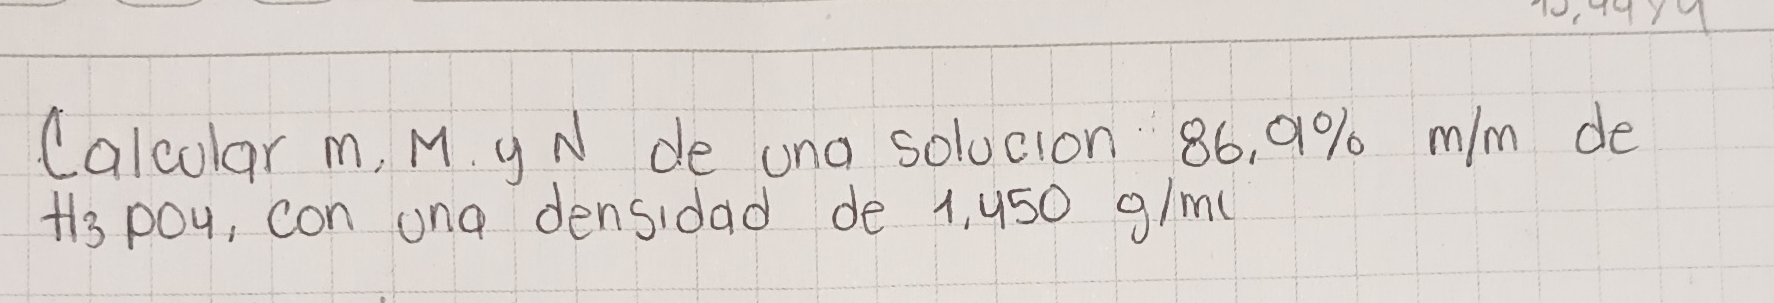 Calcular m, M. y N de una solucion 86,9% m/m de
H3 PO4, con una densidad de 1,450 g/ml